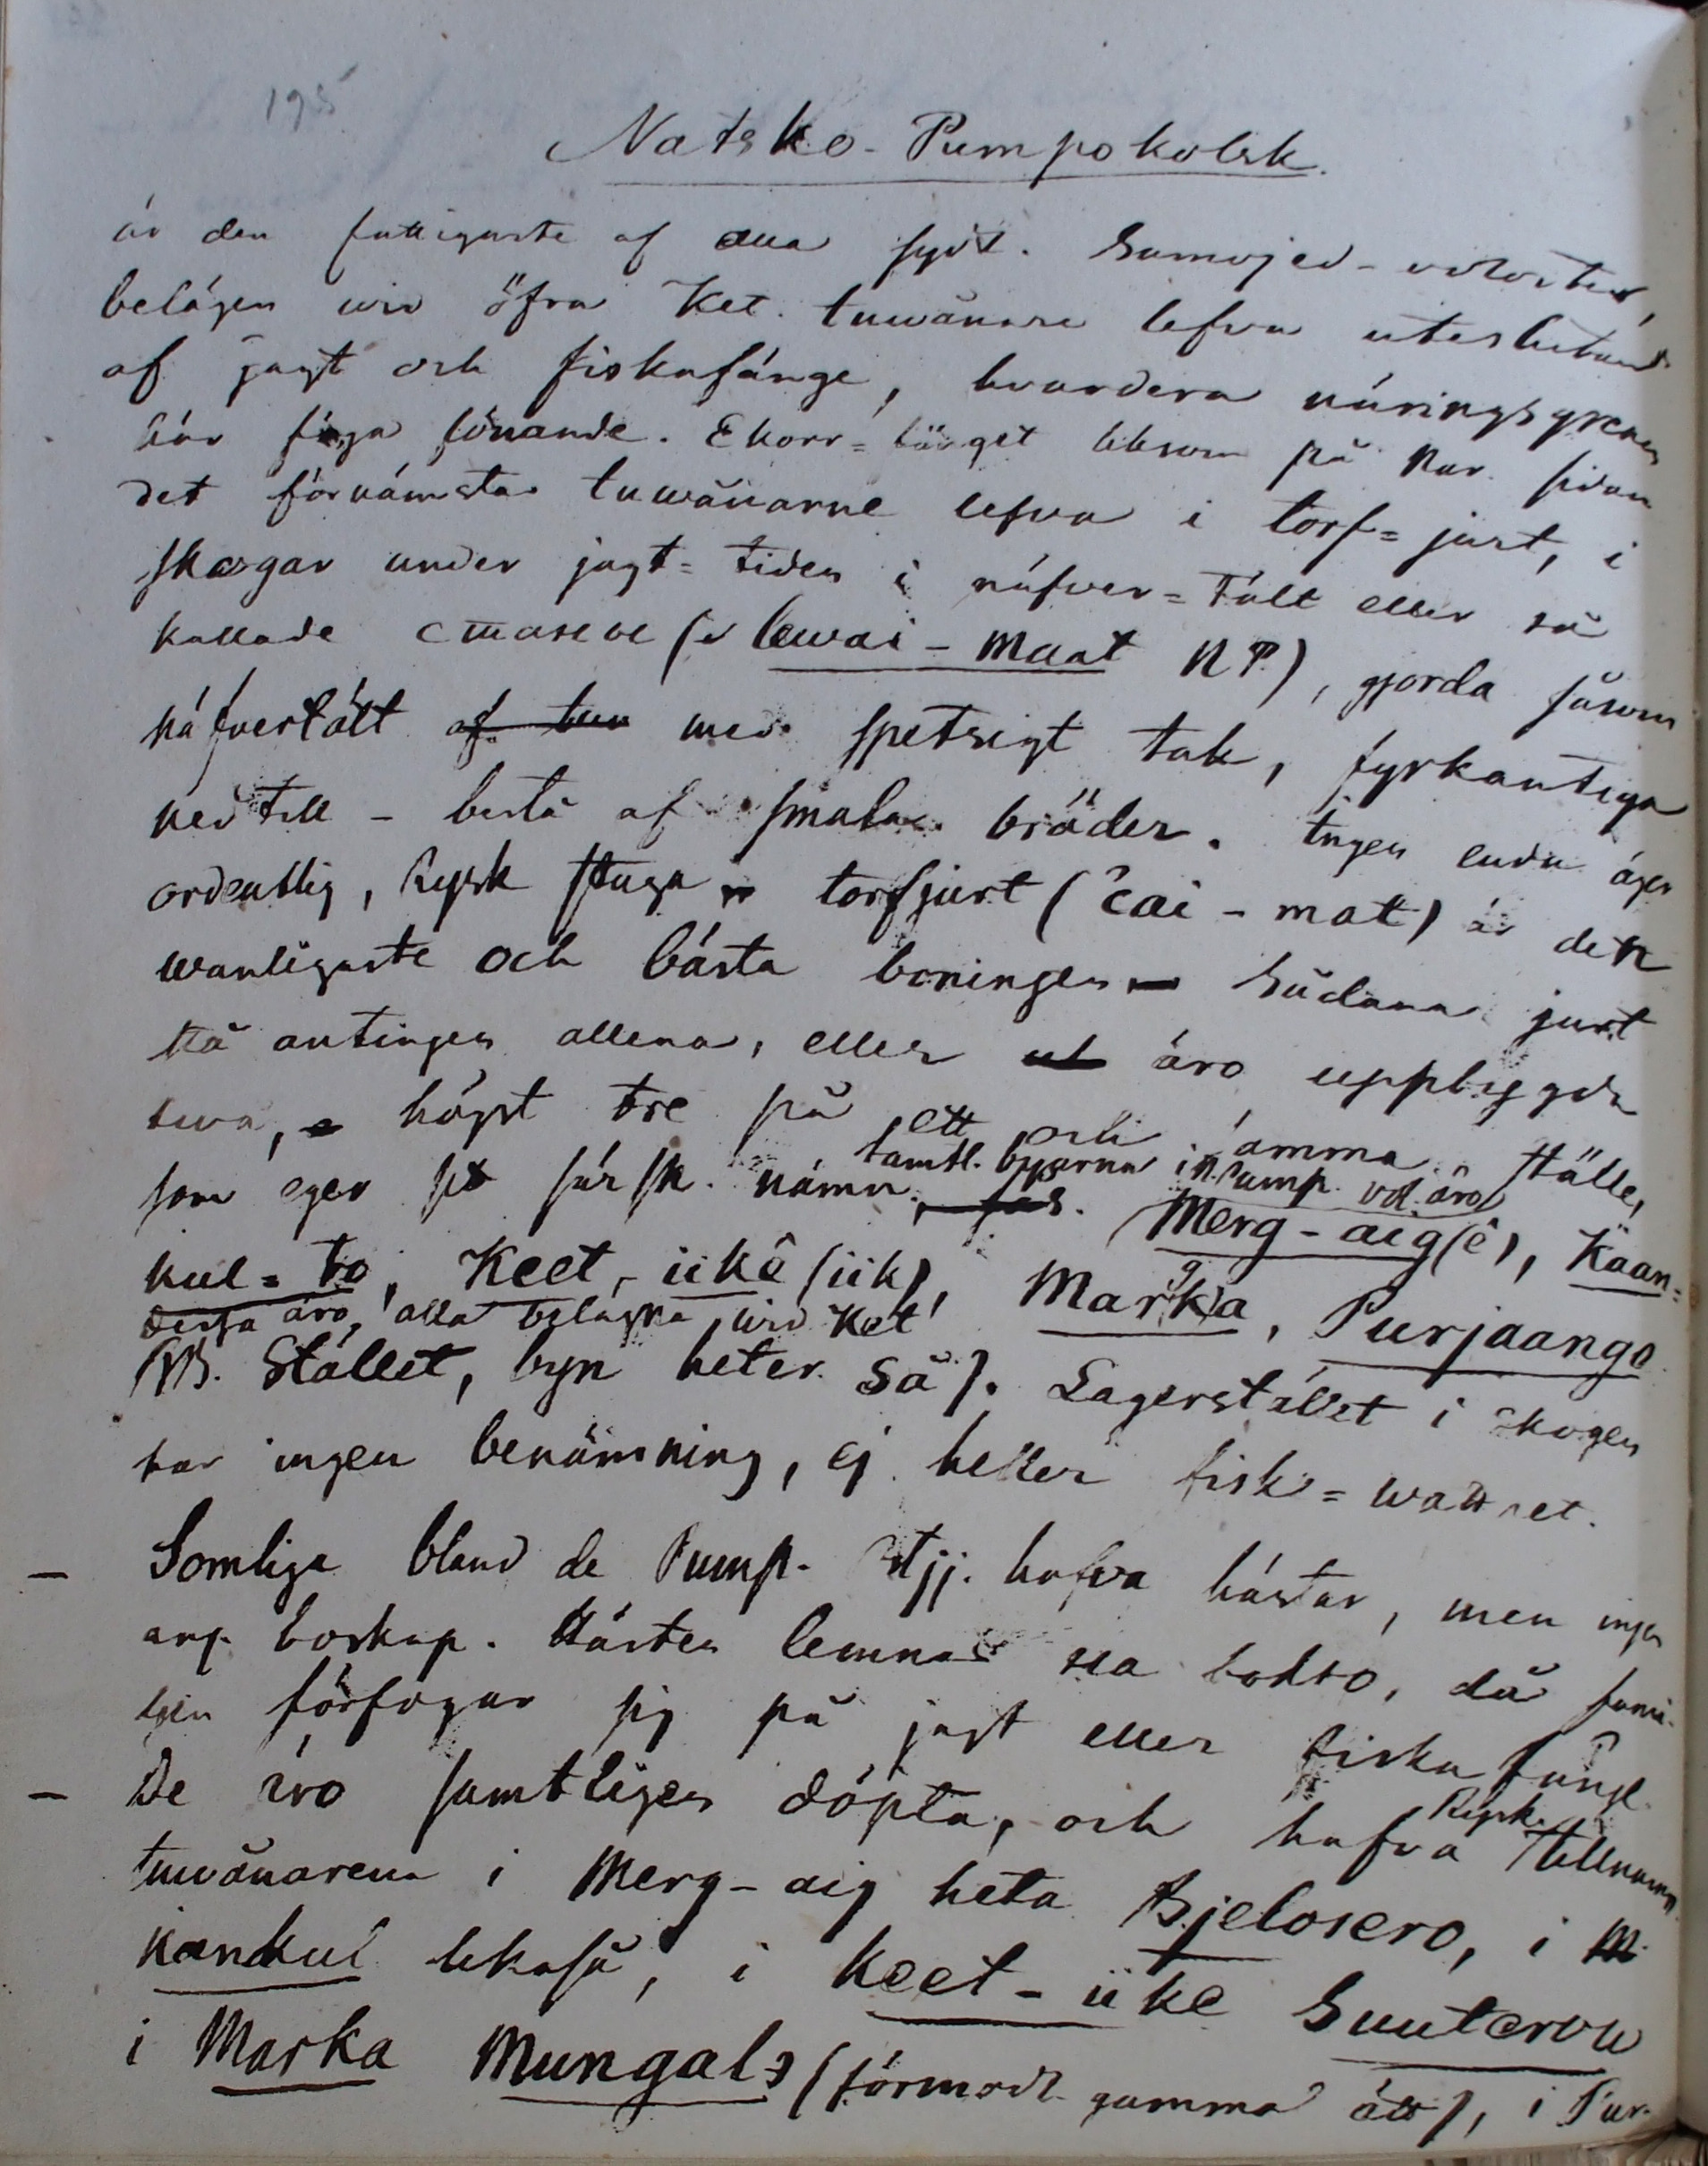 195
Natsko-Pumpokolsk.
är den fattigaste af alla sydl. Samojed-voloster,
belägen wid öfra Ket. Inwånare lefva uteslutand
af jagt och fiskafänge, hvardera näringsgrenen
här föga lönande. Ekorr=fånget liksom på Nar. sidan
det förnämsta. Inwånarne lefva i torf=jurt, i
skogar under jagt=tiden i näfver=tält eller så
kallade (lewai-maat NP), gjorda såsom
näfvertält af med spetsigt tak, fyrkantiga
nedtill - bestå af smala bräder. Ingen enda äger
ordentlig, Rysk stuga torfjurt (čai-mat) är den
wanligaste och bästa boningen - Sådana jurt
stå antingen allena, eller äro uppbyggda
twa, högst tre på ett och samma ställe,
samtl. byarna i N. Pump. vol. äro
som eger sit särsk. namn. Merg-aig(ê), Käan=
kul=to, Keet-iikê (iik), Marka, Purjaango
g
dessa äro alla belägna wid Ket
NB. Stället, byn heter Sä). Lagerstället i skogen
har ingen benämning, ej heller fisk=wattnet.
- Somliga bland de Pump. Ostjj. hafva hästar, men ingen
ann. boskap. Hästen lemnas, då fami-
ljen förfogar sig på jagt eller fiskafänge.
- De äro samtligen döpta, och hafva Rysk. tillnamn.
Inwånarena i Merg-aig heta Bjelosero, i M
Kankul likaså, i Keet-iike Suuterow
i Marka Mungals (förmodl. gammal ätt), i Pur-